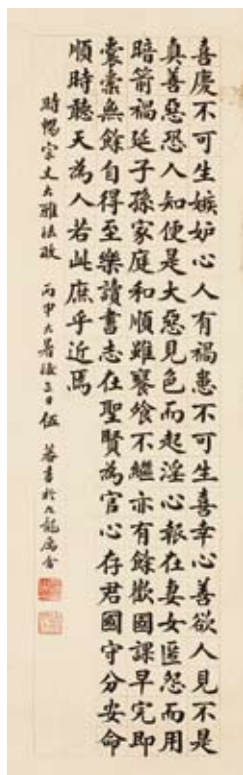 喜慶不可生嫉妒心人有禍患不可生喜幸心善欲人見不是
真善惡恐人知便是大惡見色而起淫心報在妻女匿怨而用
暗箭禍延子孫家庭和順雖饔飧不繼亦有餘歡國課早完即
囊橐無餘自得至樂讀書志在聖賢為官心存君國守分安命
順時聽天為人若此庶乎近焉
時暢宗丈大雅法政 丙申大暑後三日伍蕃書於九龍寓舍